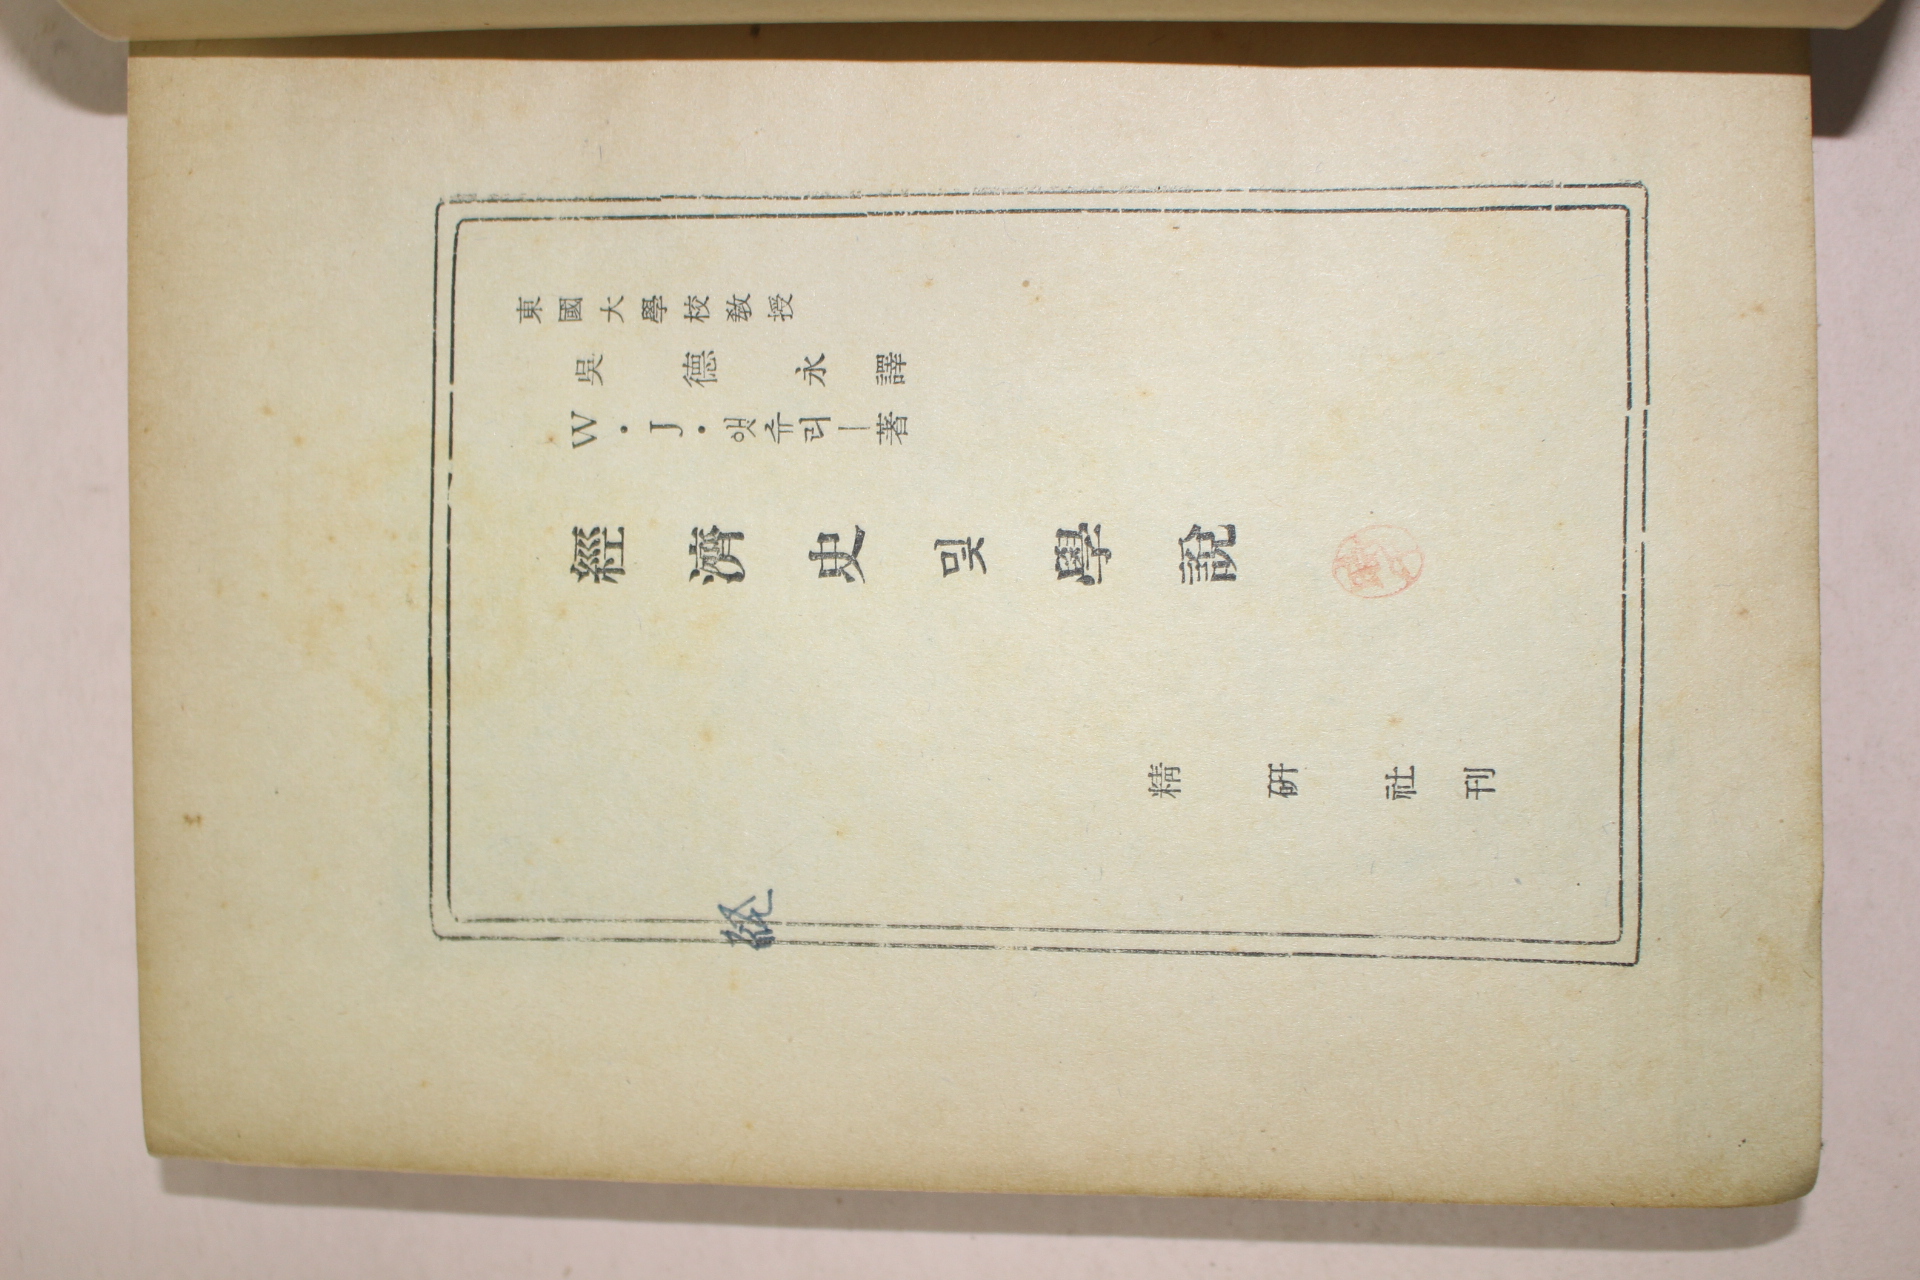 東國大學校敎授
吳德永 譯
W・J・앳슈리ー著
經濟史및學說
精硏社刊